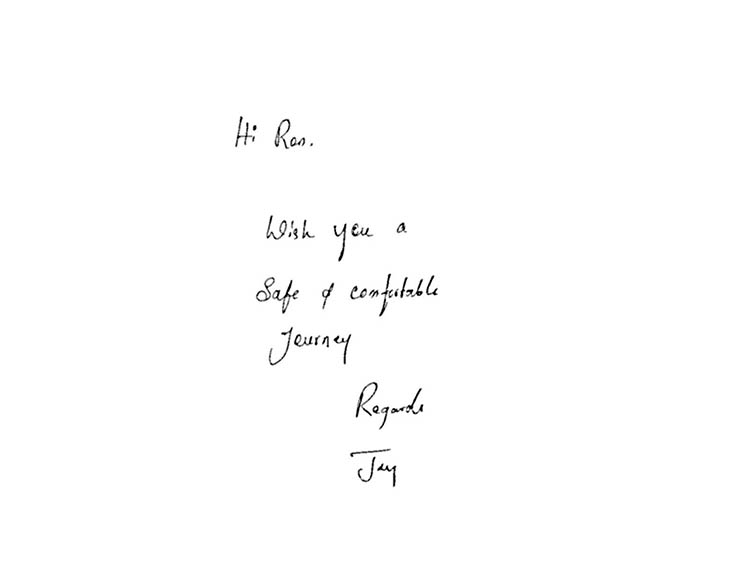 Hi Ron.
Wish you a
Safe & comfortable
Journey
Regards
Jay